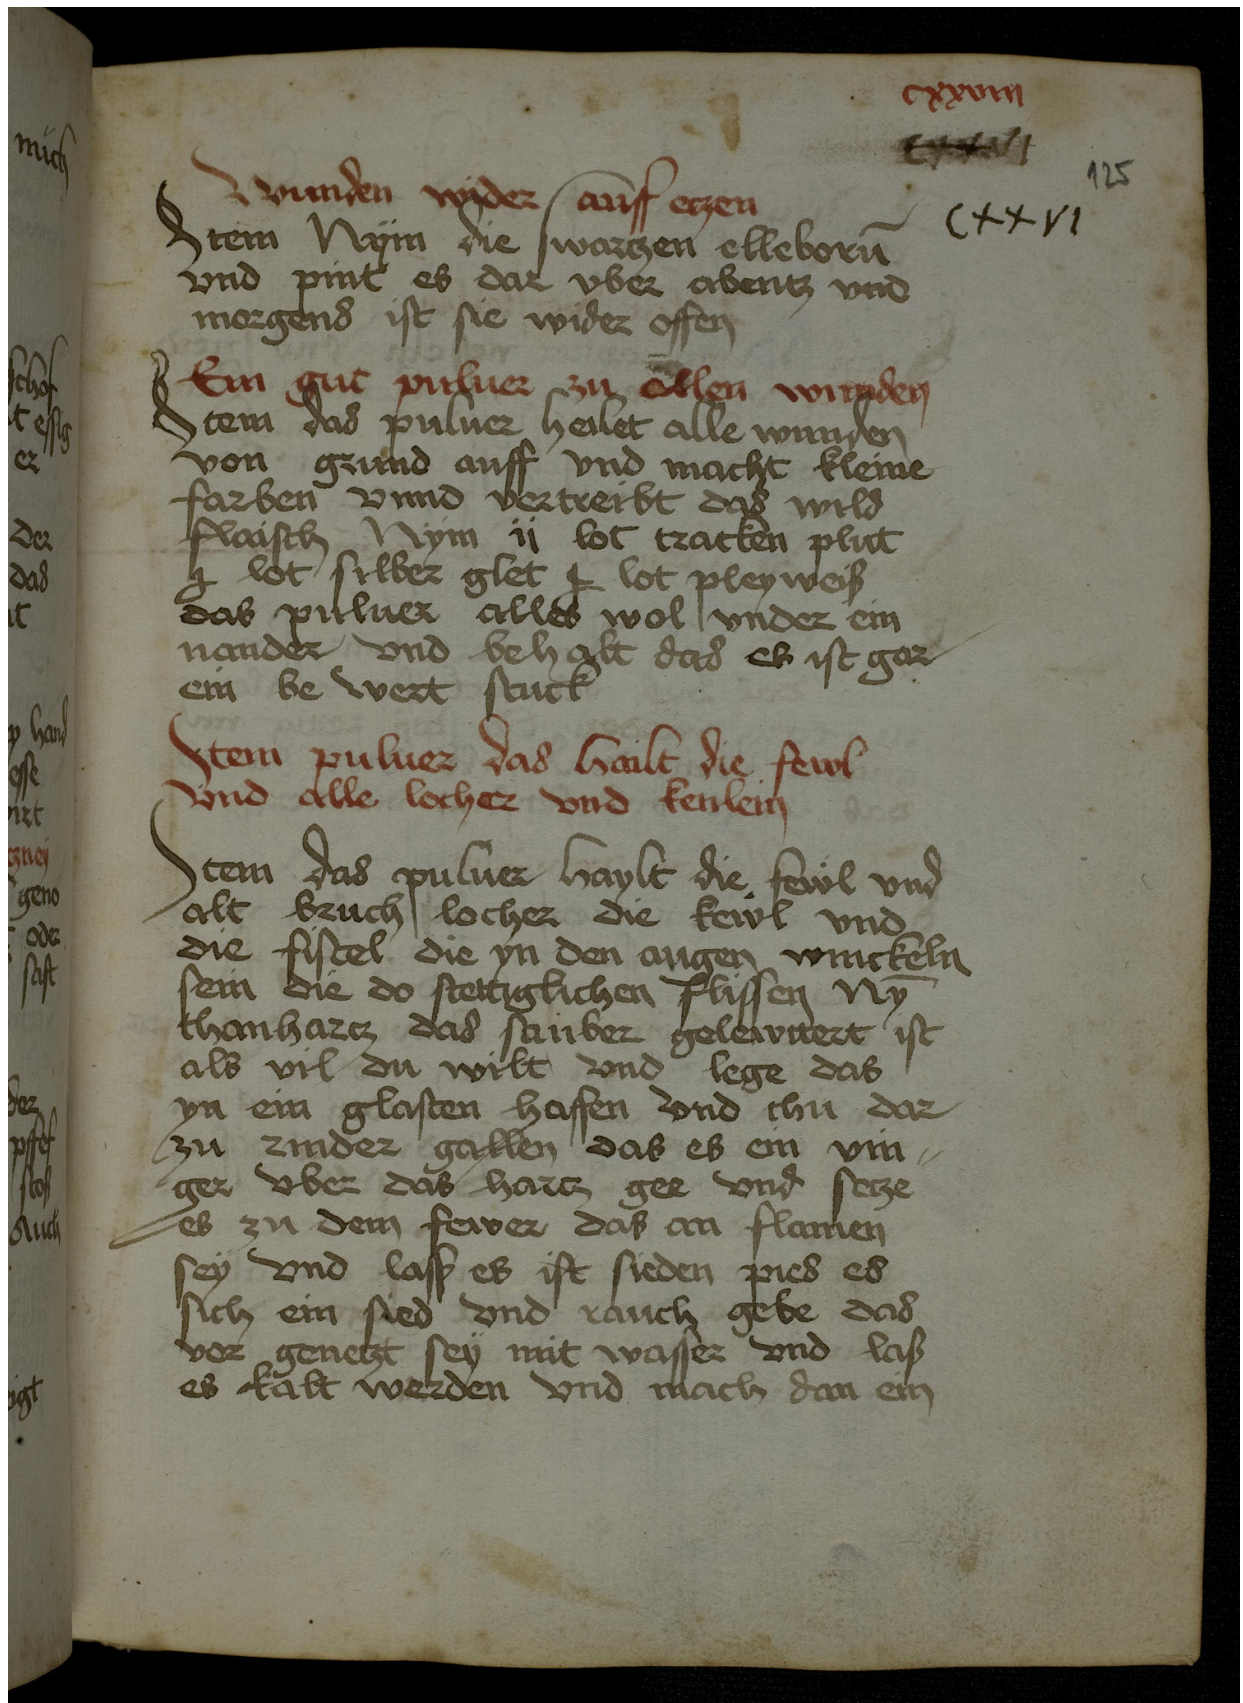 cxxviii
125
cxxvi
Wunden wider auff eczen
Item Nÿm die swarczen elleborū
vnd pint es dar vber abentz vnd
morgens ist sie wider offen
Ein gut puluer zu allen wunden
Item das puluer heilet alle wunden
von grund auff vnd macht kleine
farben vnnd vertreibt das wild
flaisch Nÿm ii lot tracken plut
lot silber glet lot pleyweiß
das puluer alles wol vnder ein
nander vnd behalt das es ist gar
ein be wert stuck
Item puluer das hailt die fewl
vnd alle locher vnd keulein
Item das puluer haylt die fewl vnd
alt bruch locher die kewl vnd
die fistel die yn den augen winckeln
sein die do stettiglichen flissen Nȳ
thanharcz das sauber gelewttert ist
als vil du wilt vnd lege das
yn ein glasten haffen vnd thu dar
zu rinder gallen das es ein vin
ger vber das harcz gee vnd secze
es zu dem fewer das an flamen
seÿ vnd lass es ist sieden pies es
sich ein sied vnd rauch gebe das
vor geneczt seÿ mit wasser vnd laß
es kalt werden vnd mach dan ein